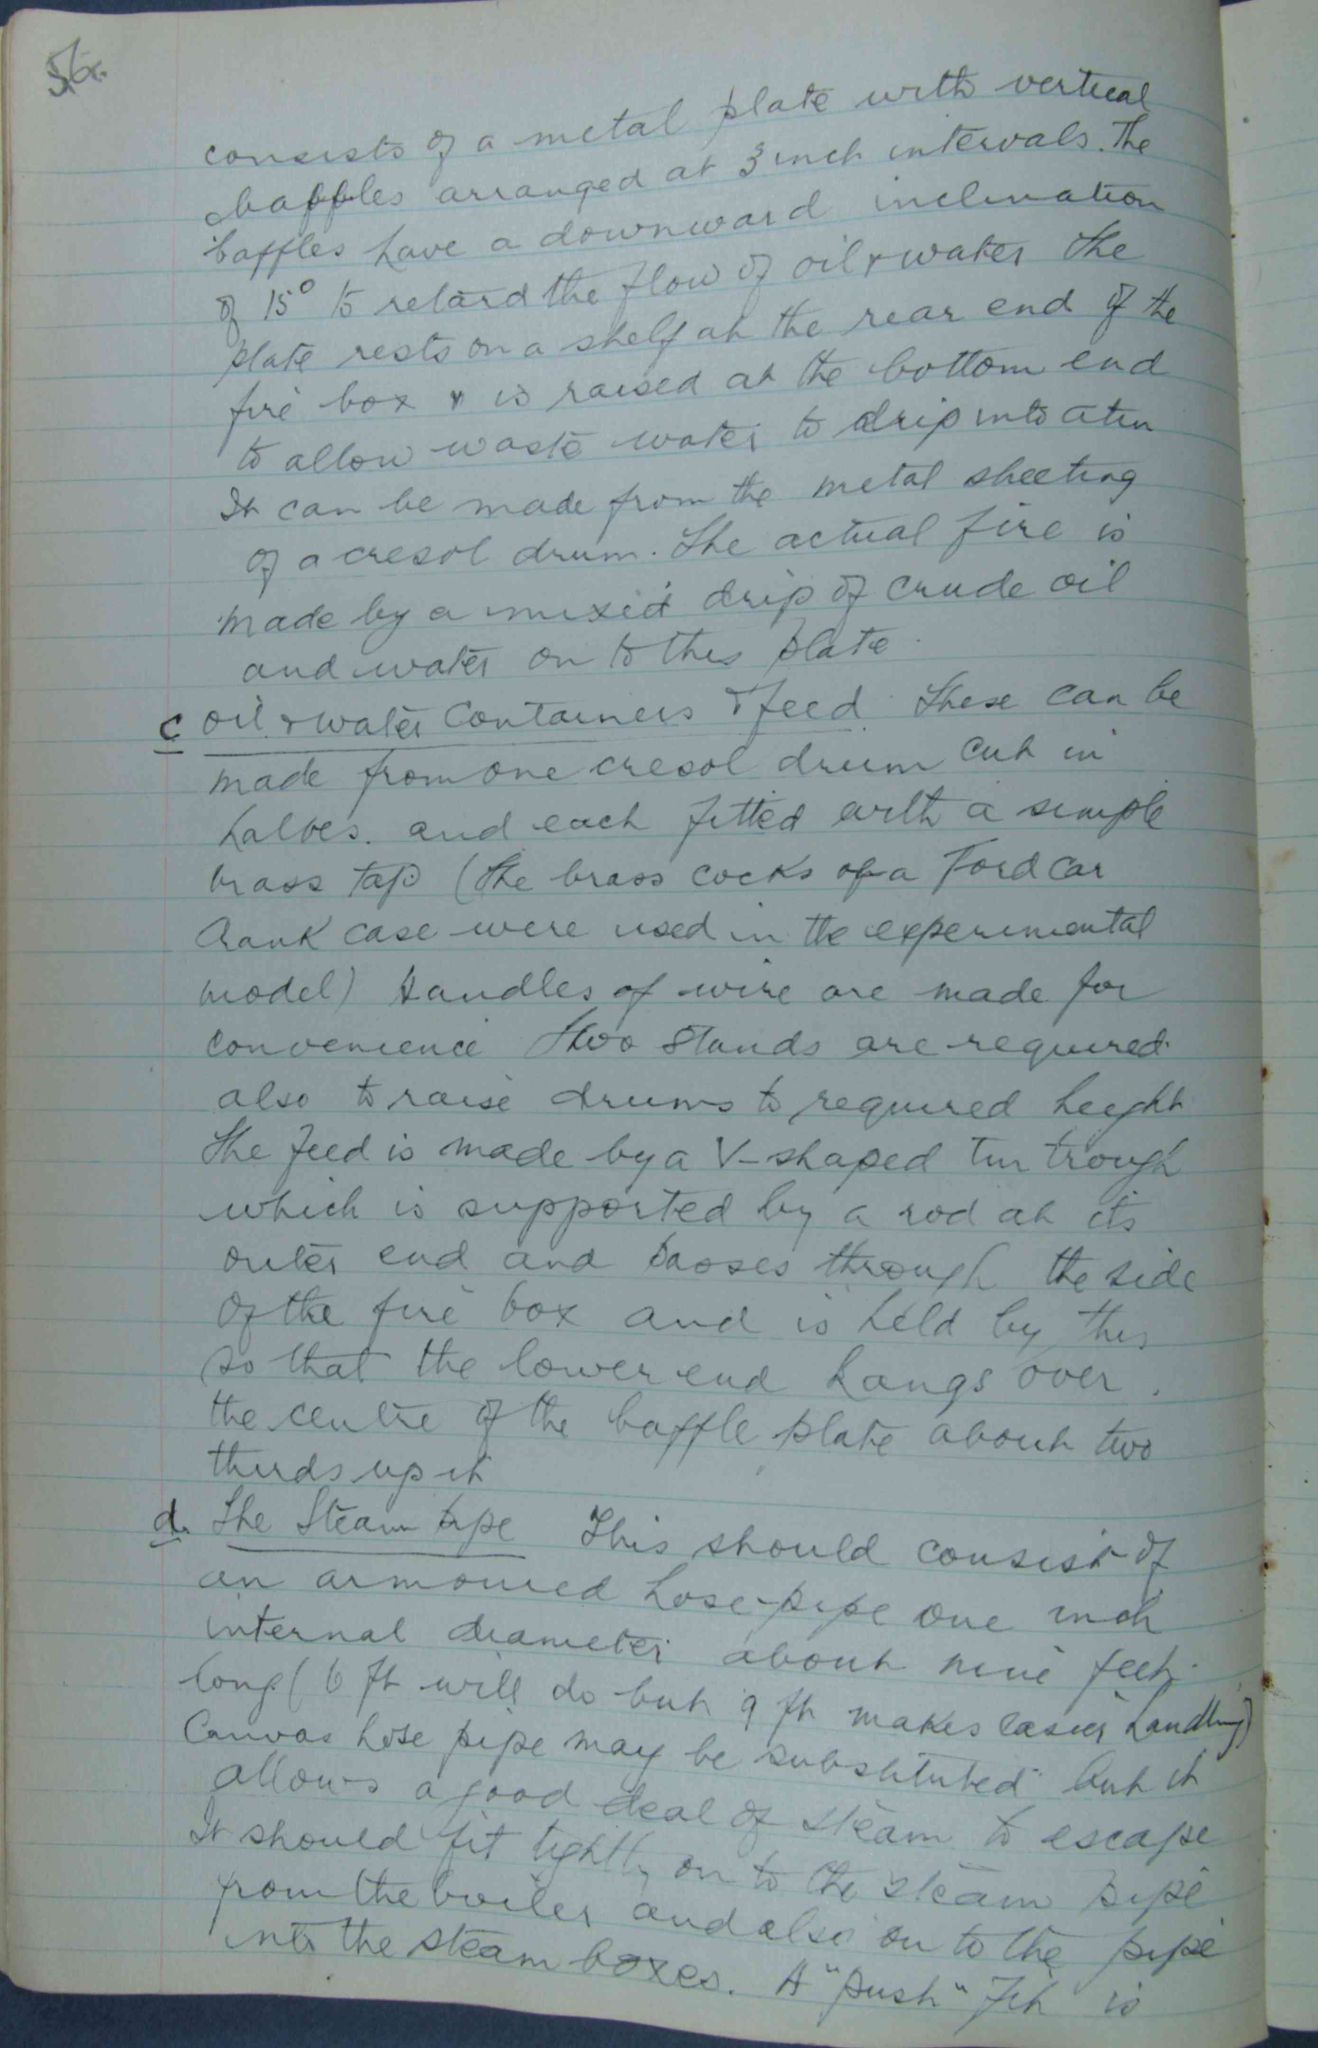 56.
consists of a metal plate with vertical
baffles arranged at 3 inch intervals. The
baffles have a downward inclination
of 15° to retard the flow of oil & water The
plate rests on a shelf at the rear end of the
fire box & is raised at the bottom end
to allow waste water to drip into a tin
It can be made from the metal sheeting
of a cresol drum. The actual fire is
made by a mixed drip of crude oil
and water on to this plate.
c oil & water Containers & feed These can be
made from one cresol drum cut in
halves. and each fitted with a simple
brass tap (the brass cocks of a Ford car
crank case were used in the experimental
model) Handles of wire are made for
convenience Two stands are required
also to raise drums to required height
The feed is made by a V-shaped tin trough
which is supported by a rod at its
outer end and passes through the side
of the fire box and is held by this
so that the lower end hangs over.
the centre of the baffle plate about two
thirds up it
d. The Steam pipe This should consist of
an armoured hose-pipe one inch
internal diameter about nine feet
long (6 ft will do but 9 ft makes easier handling)
Canvas hose pipe may be substituted but it
allows a good deal of steam to escape
It should fit tightly on to the steam pipe
from the boiler and also on to the pipe
into the steam boxes. A "push" fit is